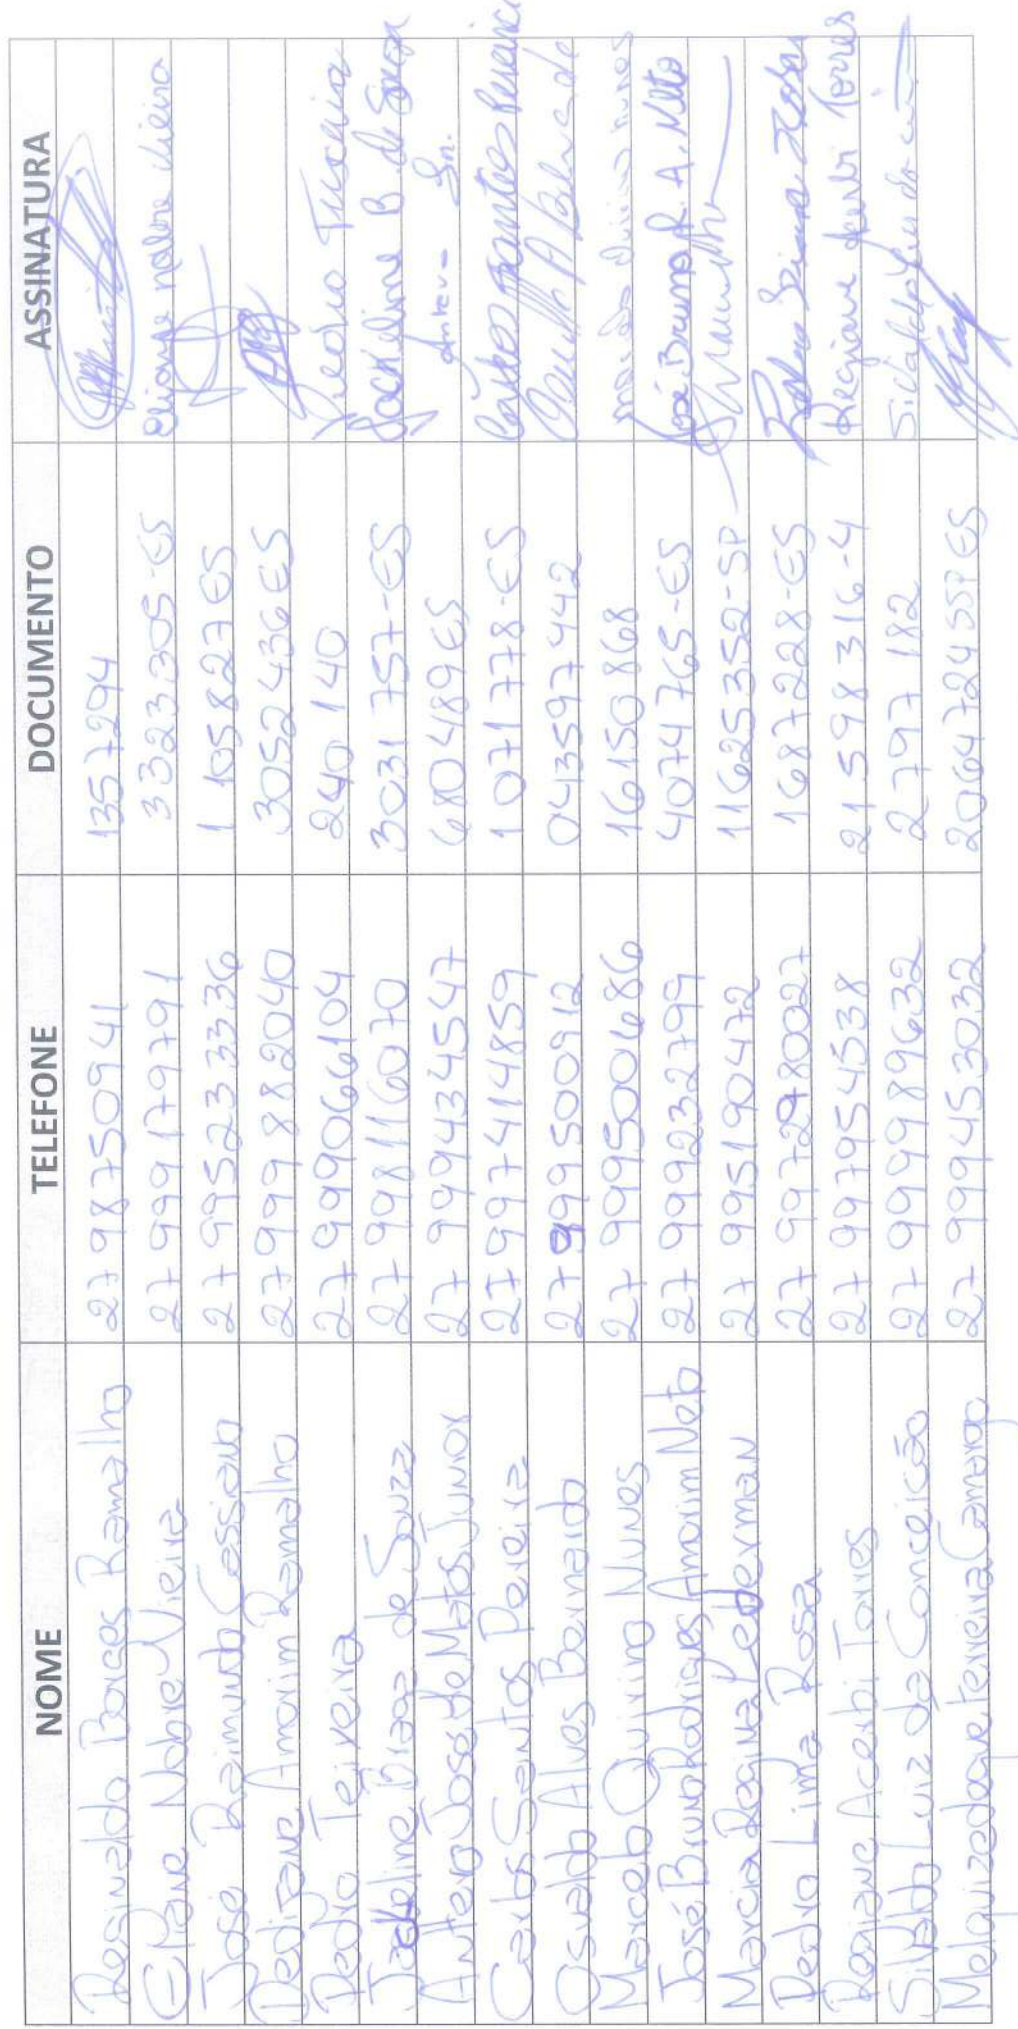 NOME TELEFONE DOCUMENTO ASSINATURA
Reginaldo Borges Ramalho 27 98750941 1357294
Eliane Nobre Vieira 27 999179791 3323305-ES Eliane nobre vieira
José Raimundo Cassiano 27 995233336 1 105827 ES
Dediane Amorim Ramalho 27 999882040 3052436 ES
Pedro Teixeira 27 999066104 240 140 Pedro Teixeira
Jackeline Braz de Souza 27 998116070 3031757-ES Jackeline B. de Souza
Antero Jose de Matos Junior 27 999434547 680489 ES Antero Jn.
Carlos Santos Pereira 27 997414859 1071778-ES Carlos Santos Pereira
Osvaldo Alves Bernardo 27 999500912 043597442
Marcelo Quirino Nunes 27 999500686 16150868
José Bruno Rodrigues Amorim Neto 27 999232799 4074765-ES José Bruno R. A. Neto
Marcia Regina Lederman 27 995190472 11625352-SP
Pedro Lima Rosa 27 997298002 1687228-ES
Regiane Acerbi Torres 27 997954538 21598316-4 Regiane Acerbi Torres
Sivaldo Luiz da Conceição 27 999989632 2797 182
Melquizedeque Ferreira Camargo 27 999453032 20647245SP ES